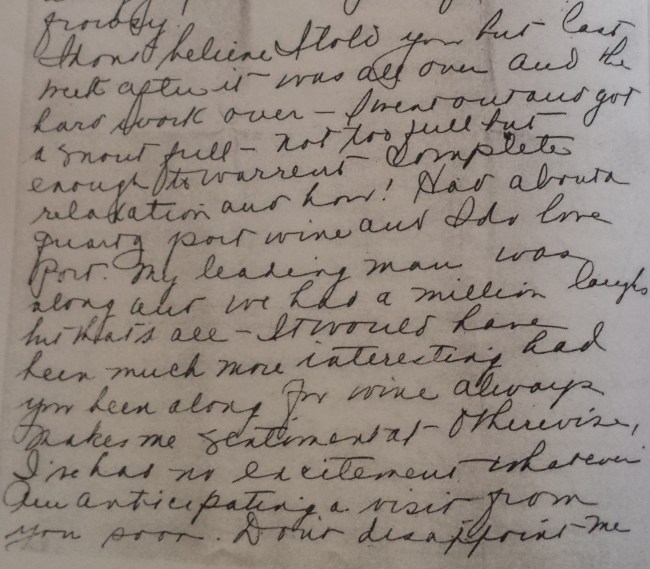 I dont believe I told you but last
week after it was all over and the
hard work over - I went out and got
a snout full - not too full but
enough to warrent complete
relaxation and how! Had about a
quart of port wine and I do love
Port. My leading man was
along and we had a million laughs
but thats all - It would have
been much more interesting had
you been along for wine always
makes me sentimental - Otherwise,
I've had no excitement whatever
Am anticipating a visit from
you soon. Don't disappoint me